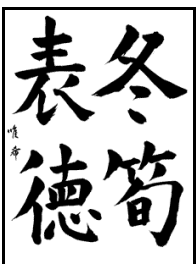 冬筍
表德
唯希